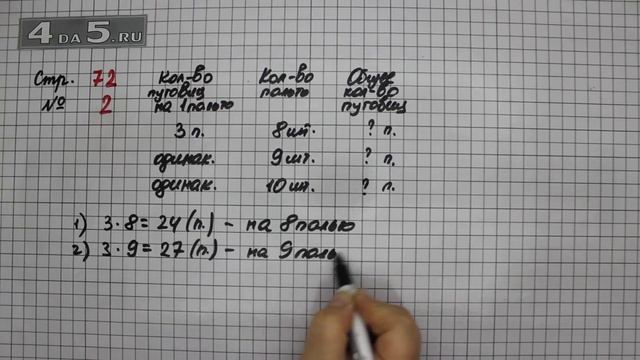 4DA5.RU
Стр. 72 Кол-во Кол-во Общее
№ 2 пуговиц пальто кол-во
на 1 пальто пуговиц
3 п. 8 шт. ? п.
одинак. 9 шт. ? п.
одинак. 10 шт. ? п.
1) 3 · 8 = 24 (п.) – на 8 пальто
2) 3 · 9 = 27 (п.) – на 9 паль